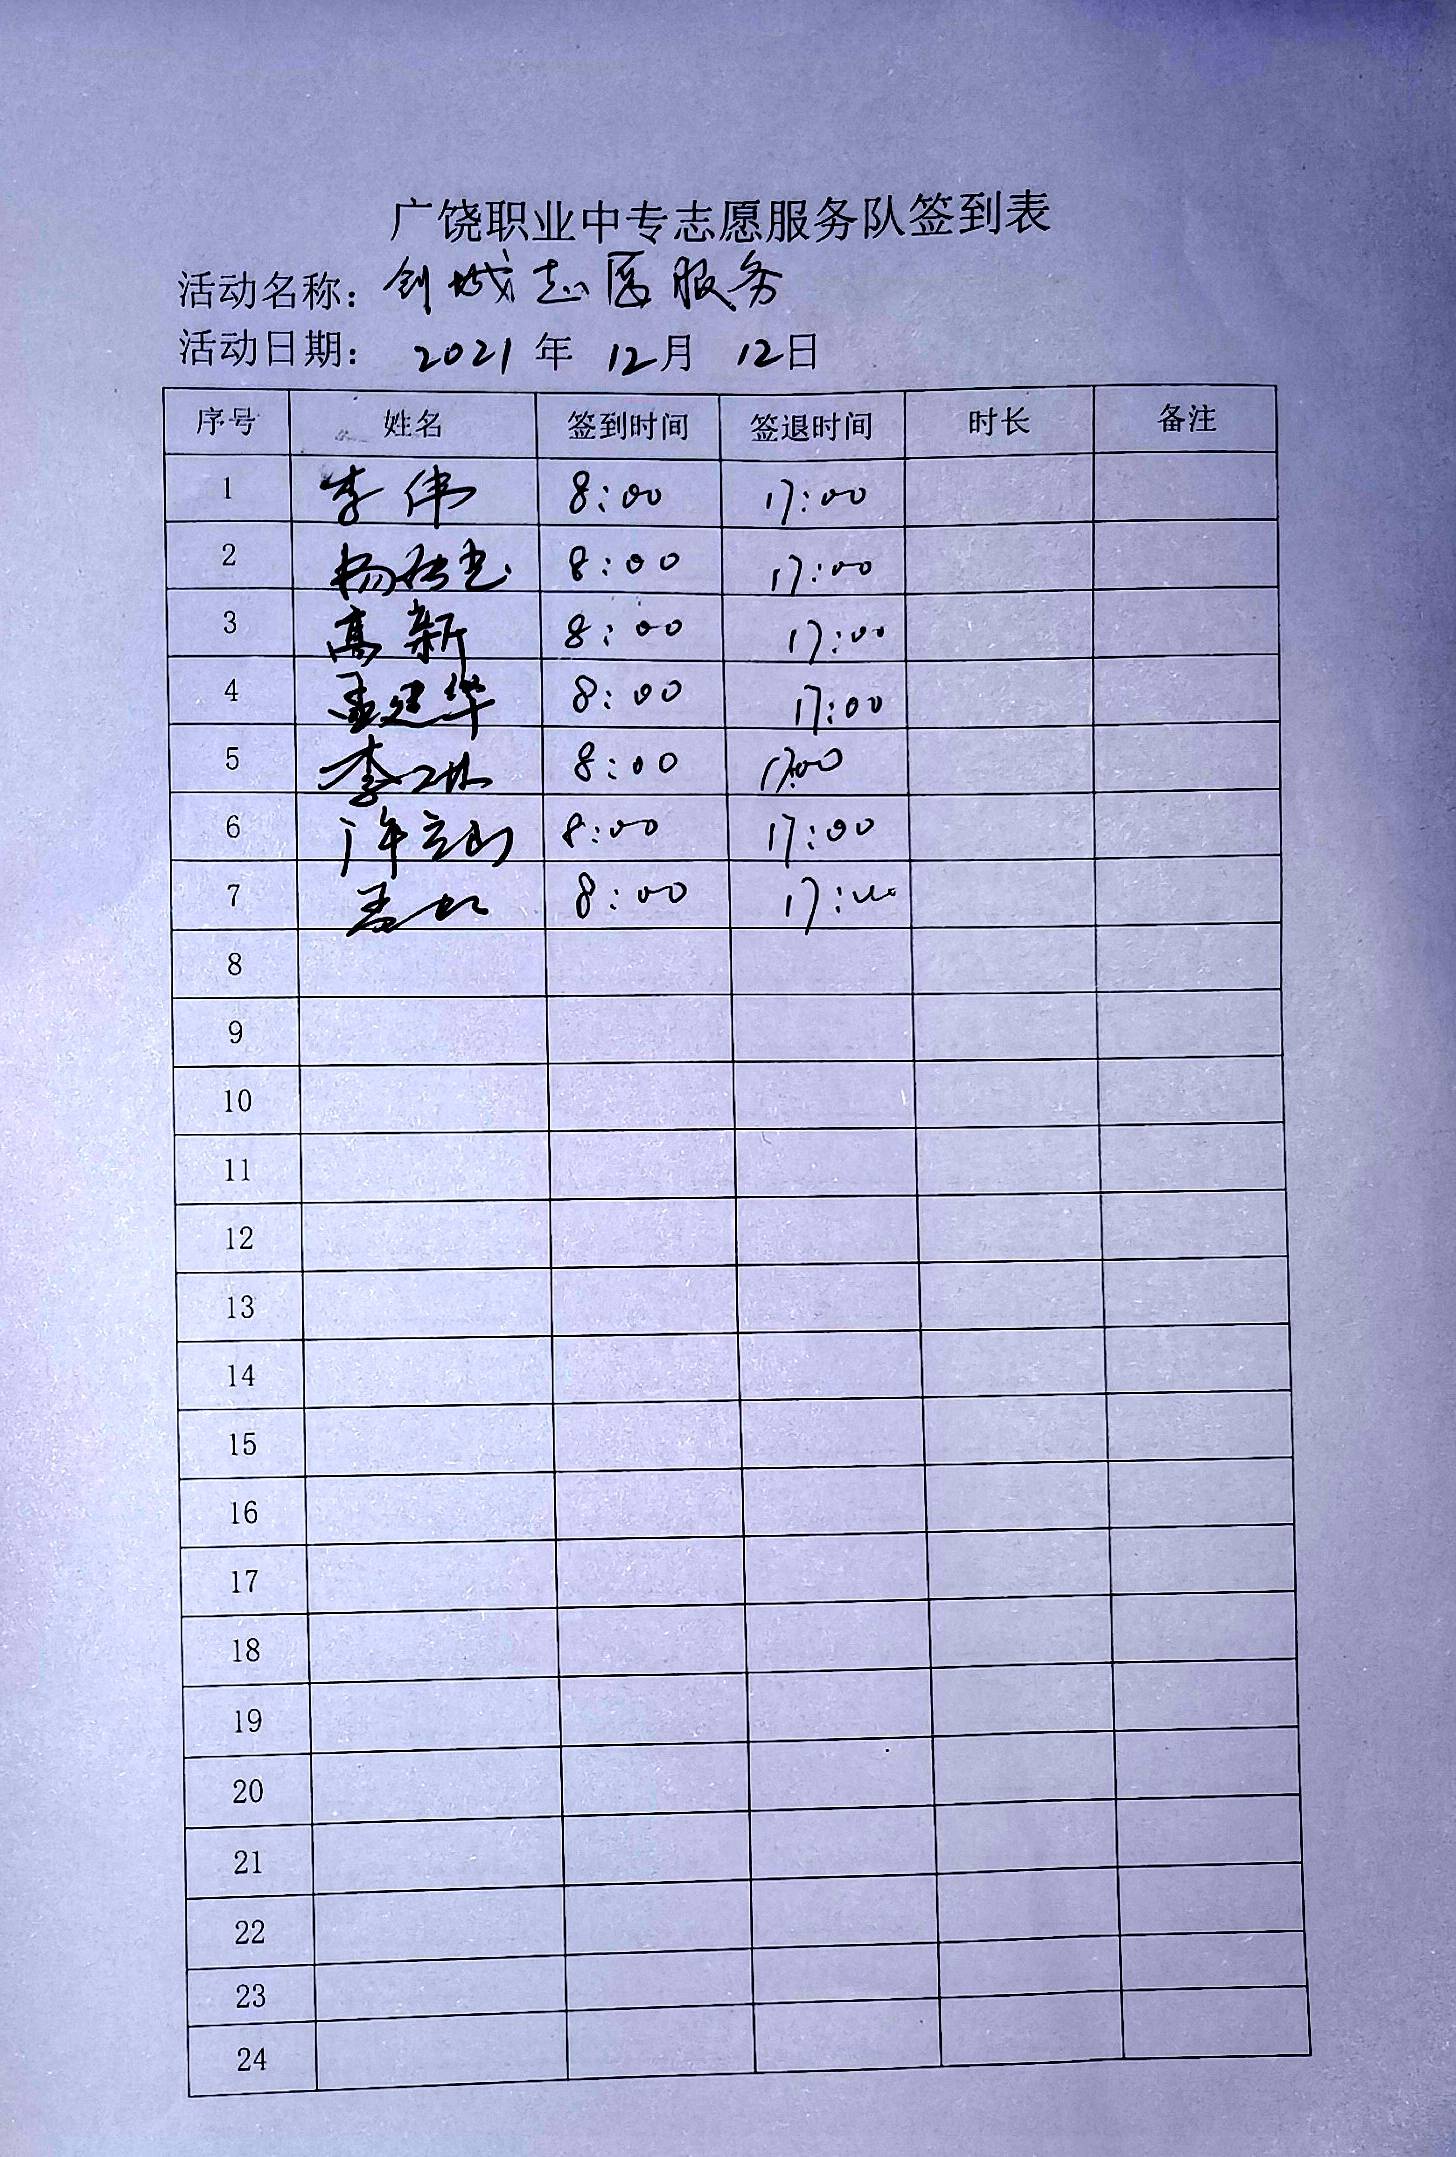 广饶职业中专志愿服务队签到表
活动名称：创城志愿服务
活动日期： 2021 年 12月 12日
序号 姓名 签到时间 签退时间 时长 备注
1 李伟 8:00 17:00
2 杨 8:00 17:00
3 高新 8:00 17:00
4 孟建华 8:00 17:00
5 李 8:00 17:00
6 许立山 8:00 17:00
7 孟 8:00 17:00
8
9
10
11
12
13
14
15
16
17
18
19
20
21
22
23
24